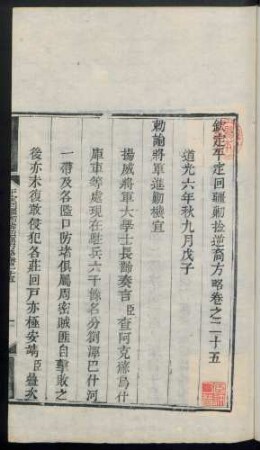 欽定平定回疆剿捡逆裔方畧卷之二十五
道光六年秋九月戊子
勅諭將軍進勦機宜
揚威將軍大學士長齡奏言臣查阿克蘇烏什
庫車等處現在駐兵六千餘名分劄渾巴什河
一帶及各隘口防堵俱屬周密賊匪自擊敗之
後亦未復敢侵犯各莊回戶亦極安靖臣蓋次